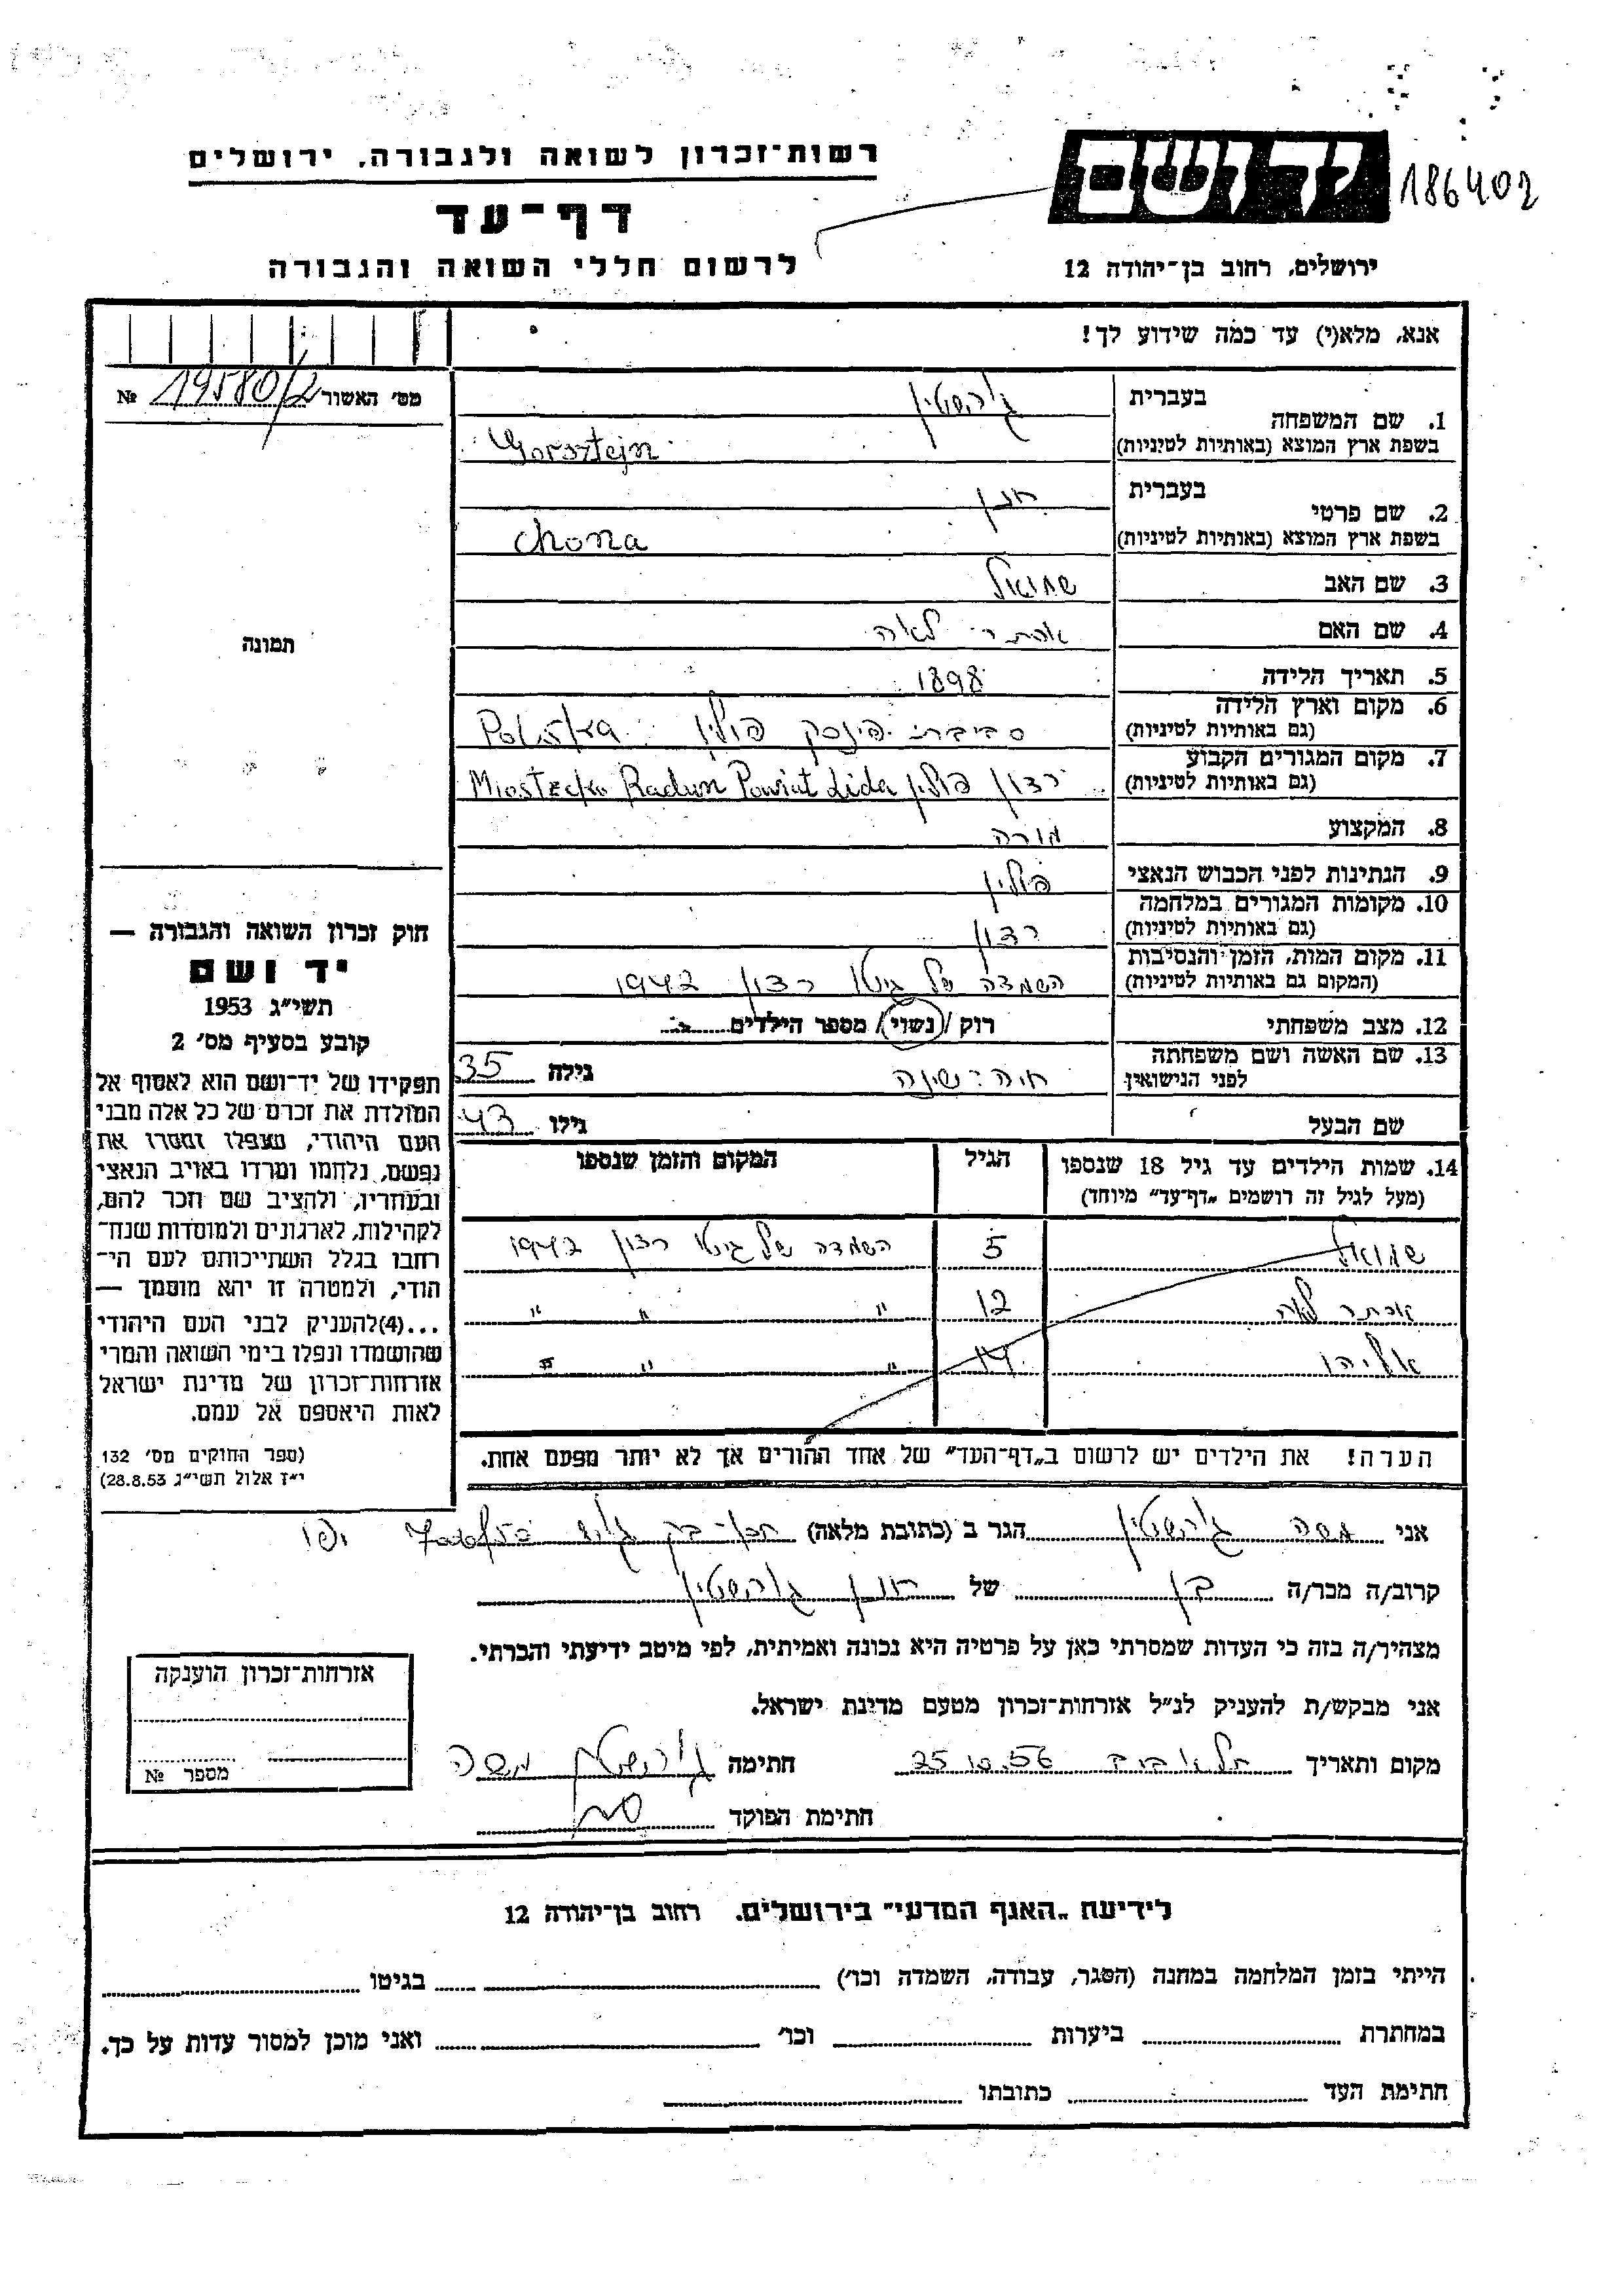 רשות־זכרון לשואה ולגבורה, ירושלים
דף־עד
לרשום חללי השואה והגבורה
יד ושם
186402
ירושלים, רחוב בן־יהודה 12
אנא, מלא(י) עד כמה שידוע לך!
מס׳ האשור 19580/2 №
תמונה
1. שם המשפחה
בעברית
בשפת ארץ המוצא (באותיות לטיניות)
Gorsztejn
2. שם פרטי
בעברית חנן
בשפת ארץ המוצא (באותיות לטיניות) Chona
3. שם האב שמואל
4. שם האם אסתר לאה
5. תאריך הלידה 1898
6. מקום וארץ הלידה
(גם באותיות לטיניות)
סביבת פינסק פולין Polska
7. מקום המגורים הקבוע
(גם באותיות לטיניות)
רדון פולין Miasteczko Radun Powiat Lida
8. המקצוע מורה
9. הנתינות לפני הכבוש הנאצי פולין
10. מקומות המגורים במלחמה
(גם באותיות לטיניות)
רדון
11. מקום המות, הזמן והנסיבות
(המקום גם באותיות לטיניות)
השמדה של גיטו רדון 1942
12. מצב משפחתי רוק / נשוי / מספר הילדים
13. שם האשה ושם משפחתה
לפני הנישואין
חיה־שינה גילה 35
שם הבעל גילו 43
14. שמות הילדים עד גיל 18 שנספו הגיל המקום והזמן שנספו
(מעל לגיל זה רושמים „דף־עד״ מיוחד)
שמואל 5 השמדה של גיטו רדון 1942
אסתר לאה 12 " " "
אליהו 14 " " "
הערה! את הילדים יש לרשום ב„דף־העד״ של אחד ההורים אך לא יותר מפעם אחת.
חוק זכרון השואה והגבורה —
יד ושם
תשי״ג 1953
קובע בסעיף מס׳ 2
תפקידו של יד־ושם הוא לאסוף אל
המולדת את זכרם של כל אלה מבני
העם היהודי, שנפלו ומסרו את
נפשם, נלחמו ומרדו באויב הנאצי
ובעוזריו, ולהציב שם וזכר להם,
לקהילות, לארגונים ולמוסדות שנח־
רבו בגלל השתייכותם לעם הי־
הודי, ולמטרה זו יהא מוסמך —
...(4)להעניק לבני העם היהודי
שהושמדו ונפלו בימי השואה והמרי
אזרחות־זכרון של מדינת ישראל
לאות היאספם אל עמם.
(ספר החוקים מס׳ 132
י״ז אלול תשי״ג 28.8.53)
אני משה גורשטין הגר ב (כתובת מלאה) יפו
קרוב/ה מכר/ה בן של חנן גורשטין
מצהיר/ה בזה כי העדות שמסרתי כאן על פרטיה היא נכונה ואמיתית, לפי מיטב ידיעתי והכרתי.
אני מבקש/ת להעניק לנ״ל אזרחות־זכרון מטעם מדינת ישראל.
מקום ותאריך תל אביב 25.10.56 חתימה גורשטין משה
חתימת הפוקד
אזרחות־זכרון הוענקה
מספר №
לידיעת „האגף המדעי״ בירושלים. רחוב בן־יהודה 12
הייתי בזמן המלחמה במחנה (הסגר, עבודה, השמדה וכו׳) בגיטו
במחתרת ביערות וכו׳ ואני מוכן למסור עדות על כך.
חתימת העד כתובתו